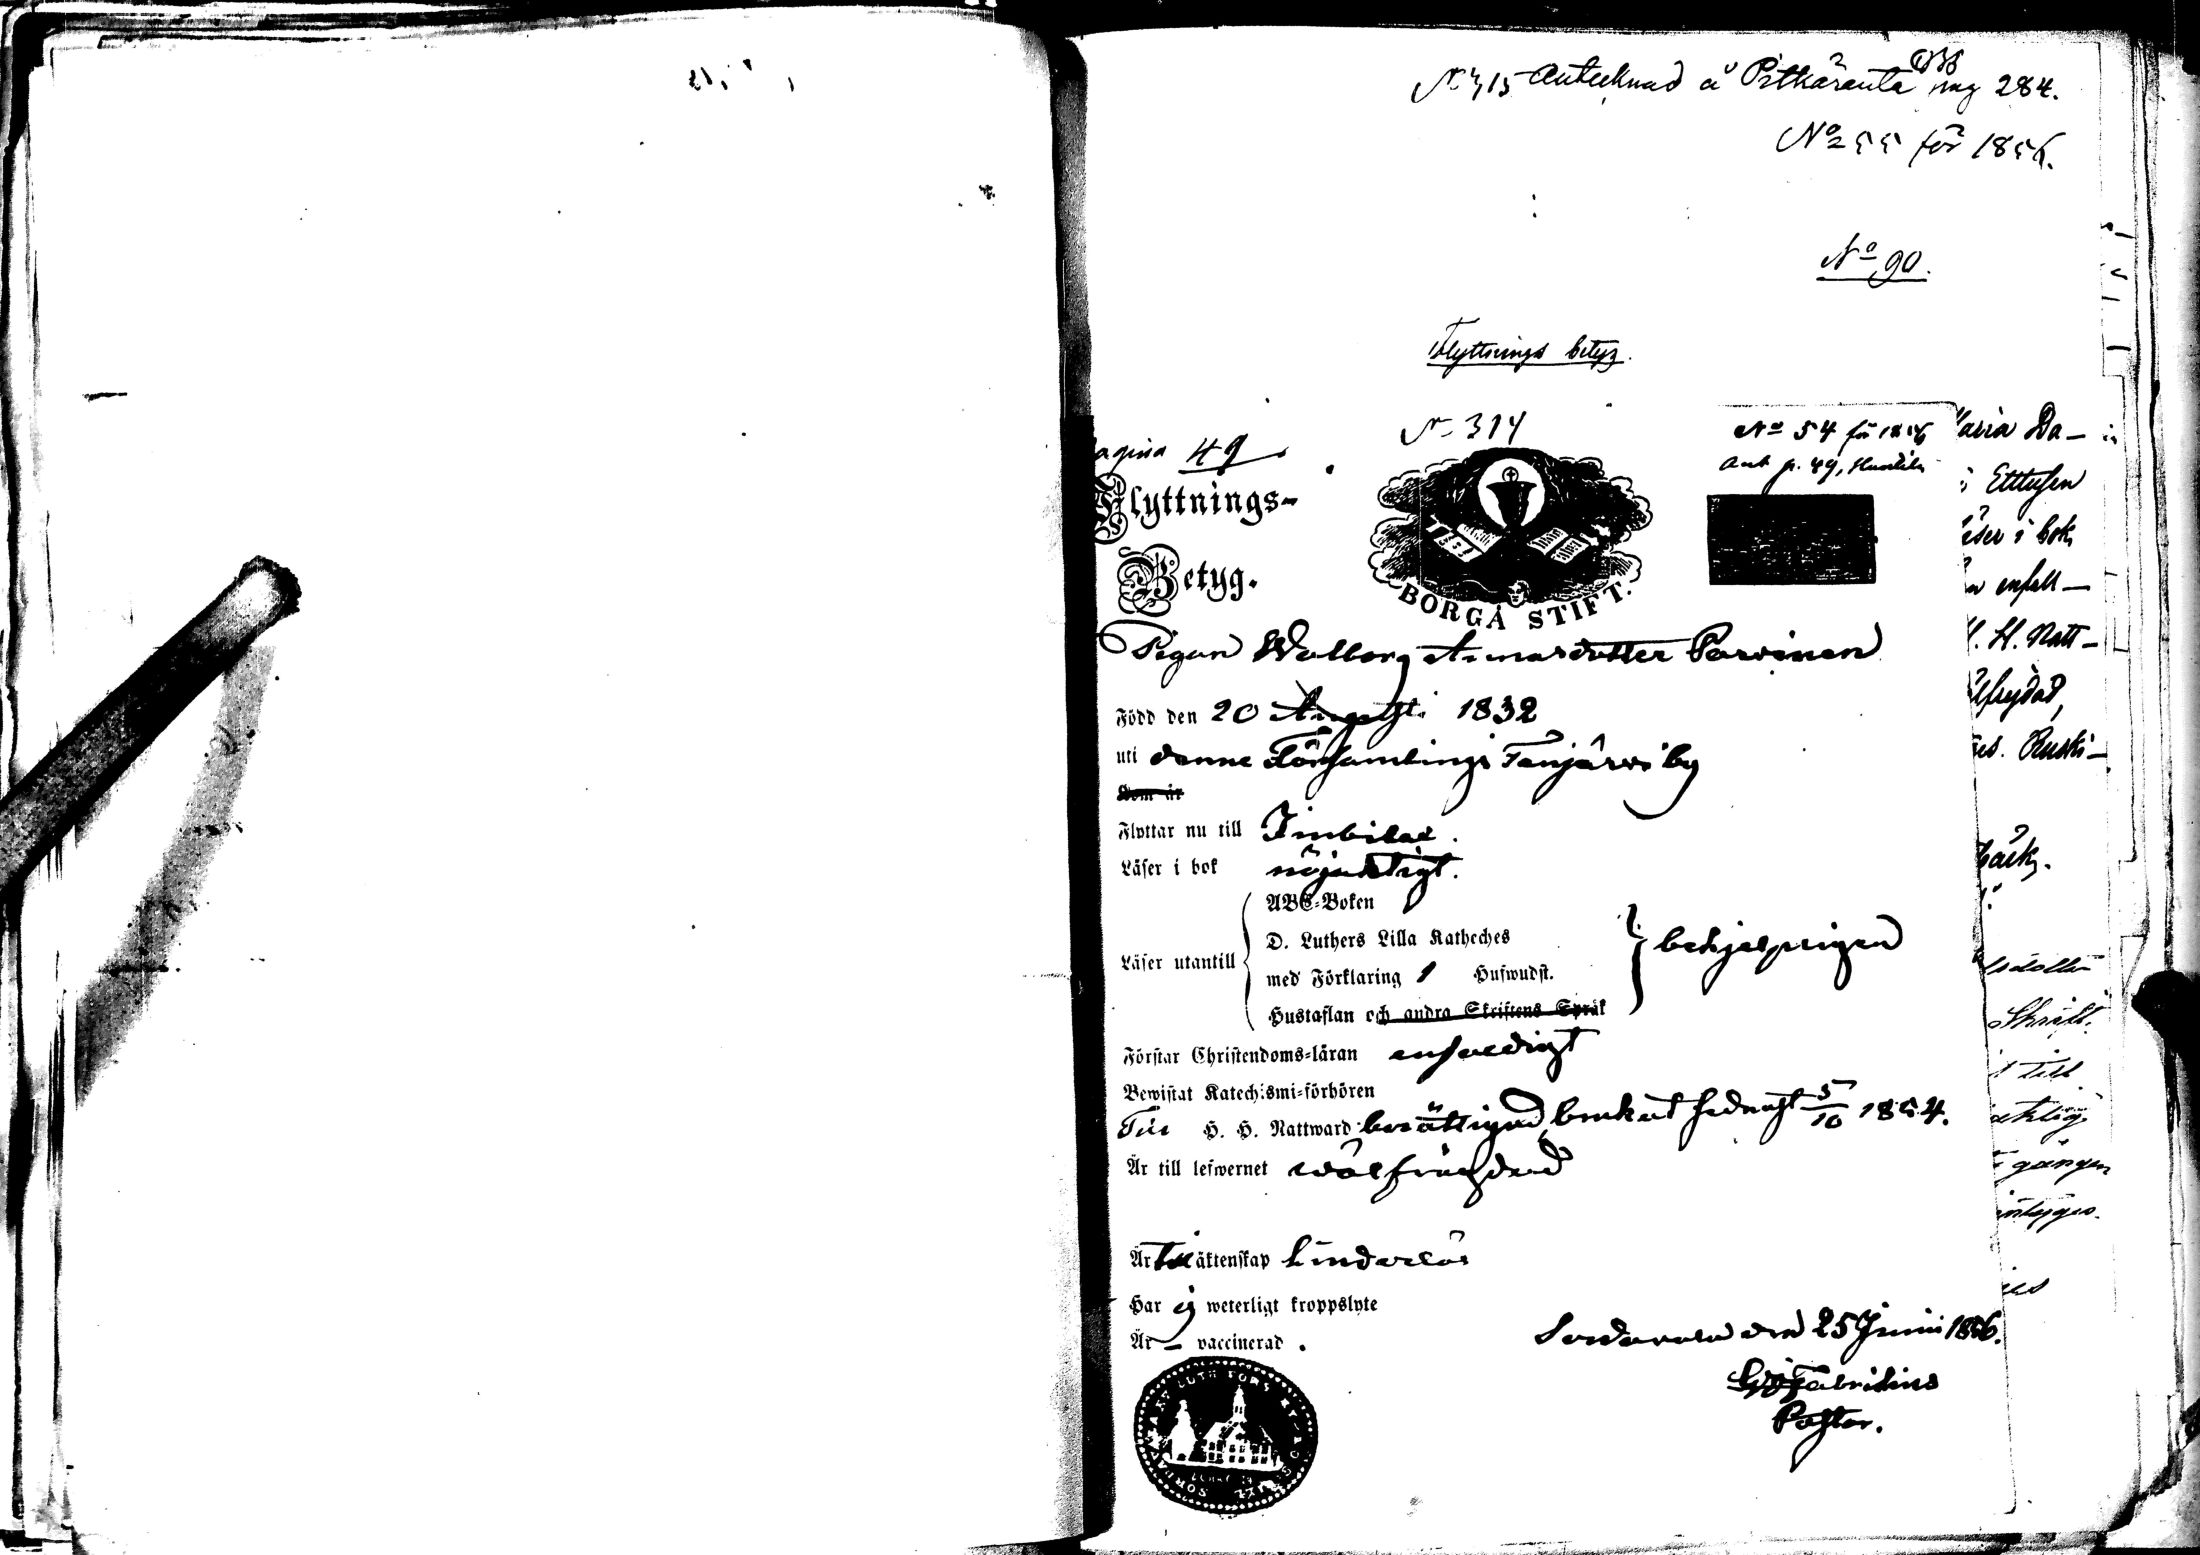 N: 315 Antecknad å Pitkäranta pag 284.
No 55 för 1856.
No 90.
Flyttnings betyg.
N: 314
pagina 49
No 54 för 1856
Ant p. 49,
Flyttnings-
Betyg.
BORGÅ STIFT.
Pigan Walborg Annasdotter Parvinen
Född den 20 Augusti 1832
uti denne Församlings Tenjärwi by
Som är
Flyttar nu till Imbilax.
Läser i bok nöjaktigt.
Läser utantill
ABC-Boken
D. Luthers Lilla Katheches
med Förklaring 1 Hufwudst.
Hustaflan och andra Skriftens Språk
behjelpligen
Förstar Christendoms-läran enfaldigt
Bewistat Katechismi-förhören
Till H. H. Nattward berättigad, brukat sednast 5/10 1854.
Är till lefwernet wälfrägdad
Är till äktenskap hinderlös
Har ej weterligt kroppslyte
Är – vaccinerad.
Sordavala den 25 Junii 1856.
Fabritius
Pastor.
Maria Da-
Ettusen
läser i bok
enfall-
H. H. Natt-
Ruski-
bäck.
Skrift.
till
gången
intygas.